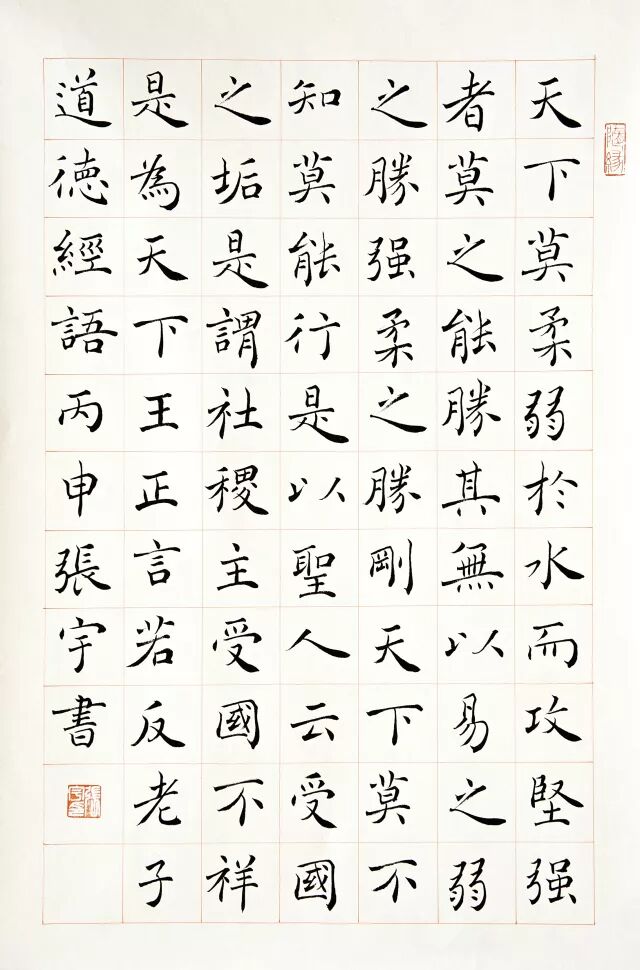 天下莫柔弱於水而攻堅强
者莫之能勝其無以易之弱
之勝强柔之勝剛天下莫不
知莫能行是以聖人云受國
之垢是謂社稷主受國不祥
是為天下王正言若反老子
道德經語丙申張宇書